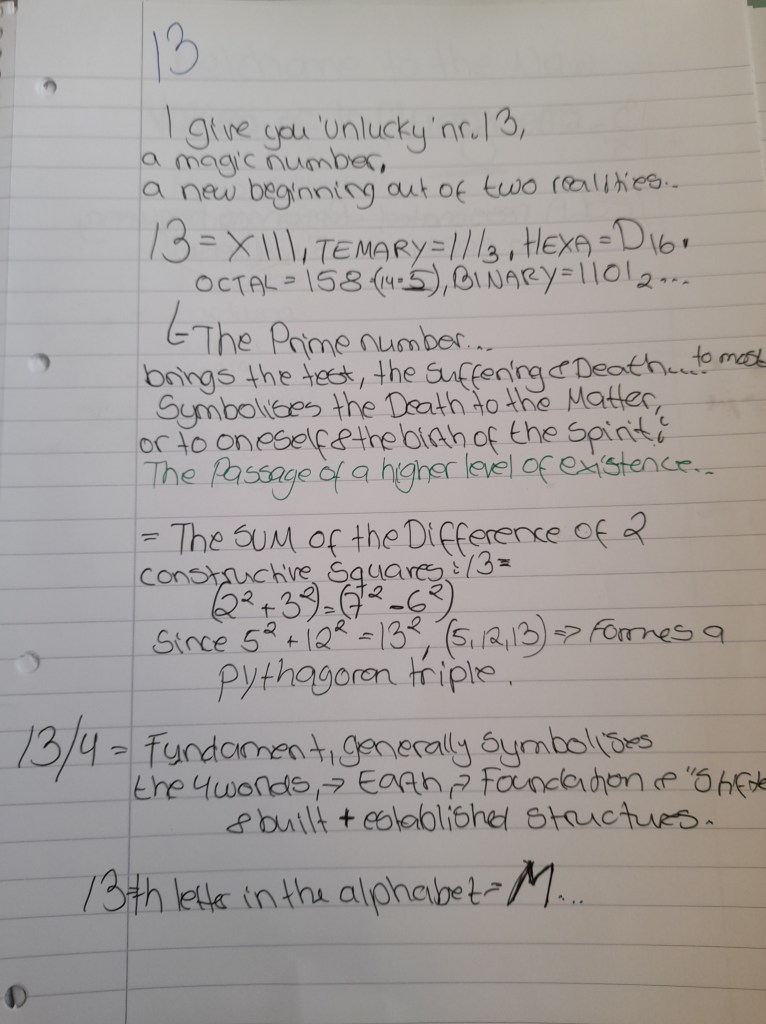 13
I give you 'unlucky' nr. 13,
a magic number,
a new beginning out of two realities..
13 = XIII, TEMARY = 111₃, HEXA = D₁₆.
OCTAL = 158 (14-5), BINARY = 1101₂...
The Prime number...
brings the test, the suffering & Death.... to most
Symbolises the Death to the Matter,
or to oneself & the birth of the spirit:
The Passage of a higher level of existence..
= The SUM of the Difference of 2
constructive squares: 13 =
(2² + 3²) = (7² - 6²)
Since 5² + 12² = 13², (5, 12, 13) => formes a
pythagoron triple.
13/4 = Fundament, generally symbolises
the 4 words, → Earth, → Foundation &
& built + established structures.
13th letter in the alphabet = M...